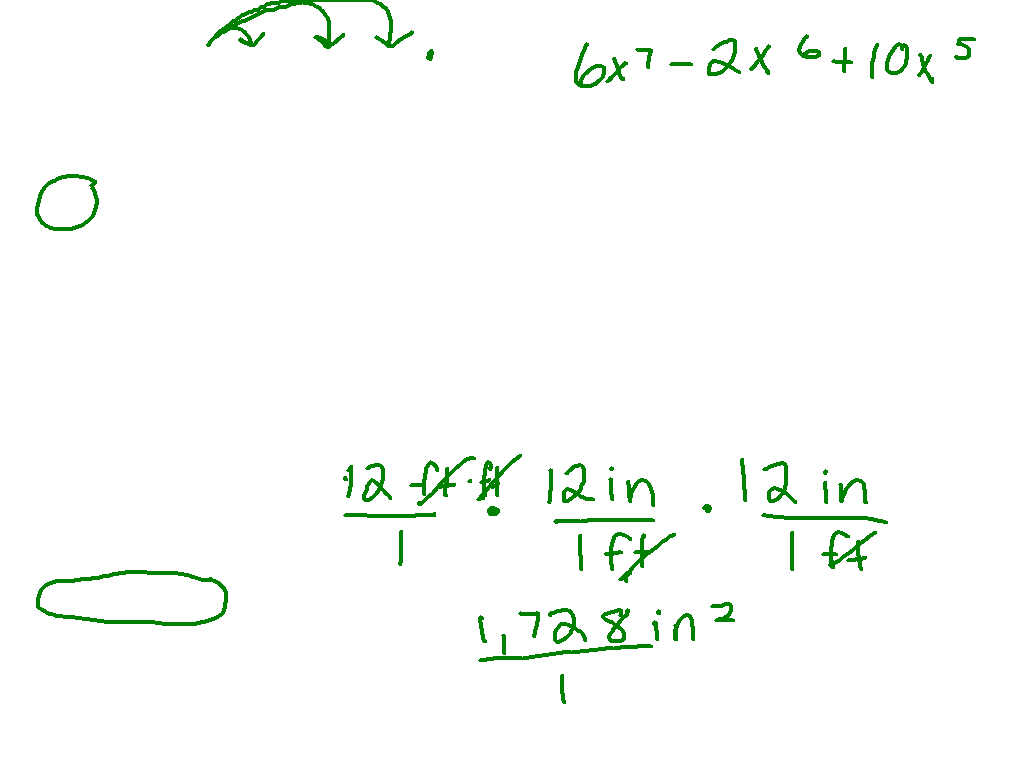 6x⁷ - 2x⁶ + 10x⁵
12 ft · ft · 12 in · 12 in
1 1 ft 1 ft
1,728 in²
1